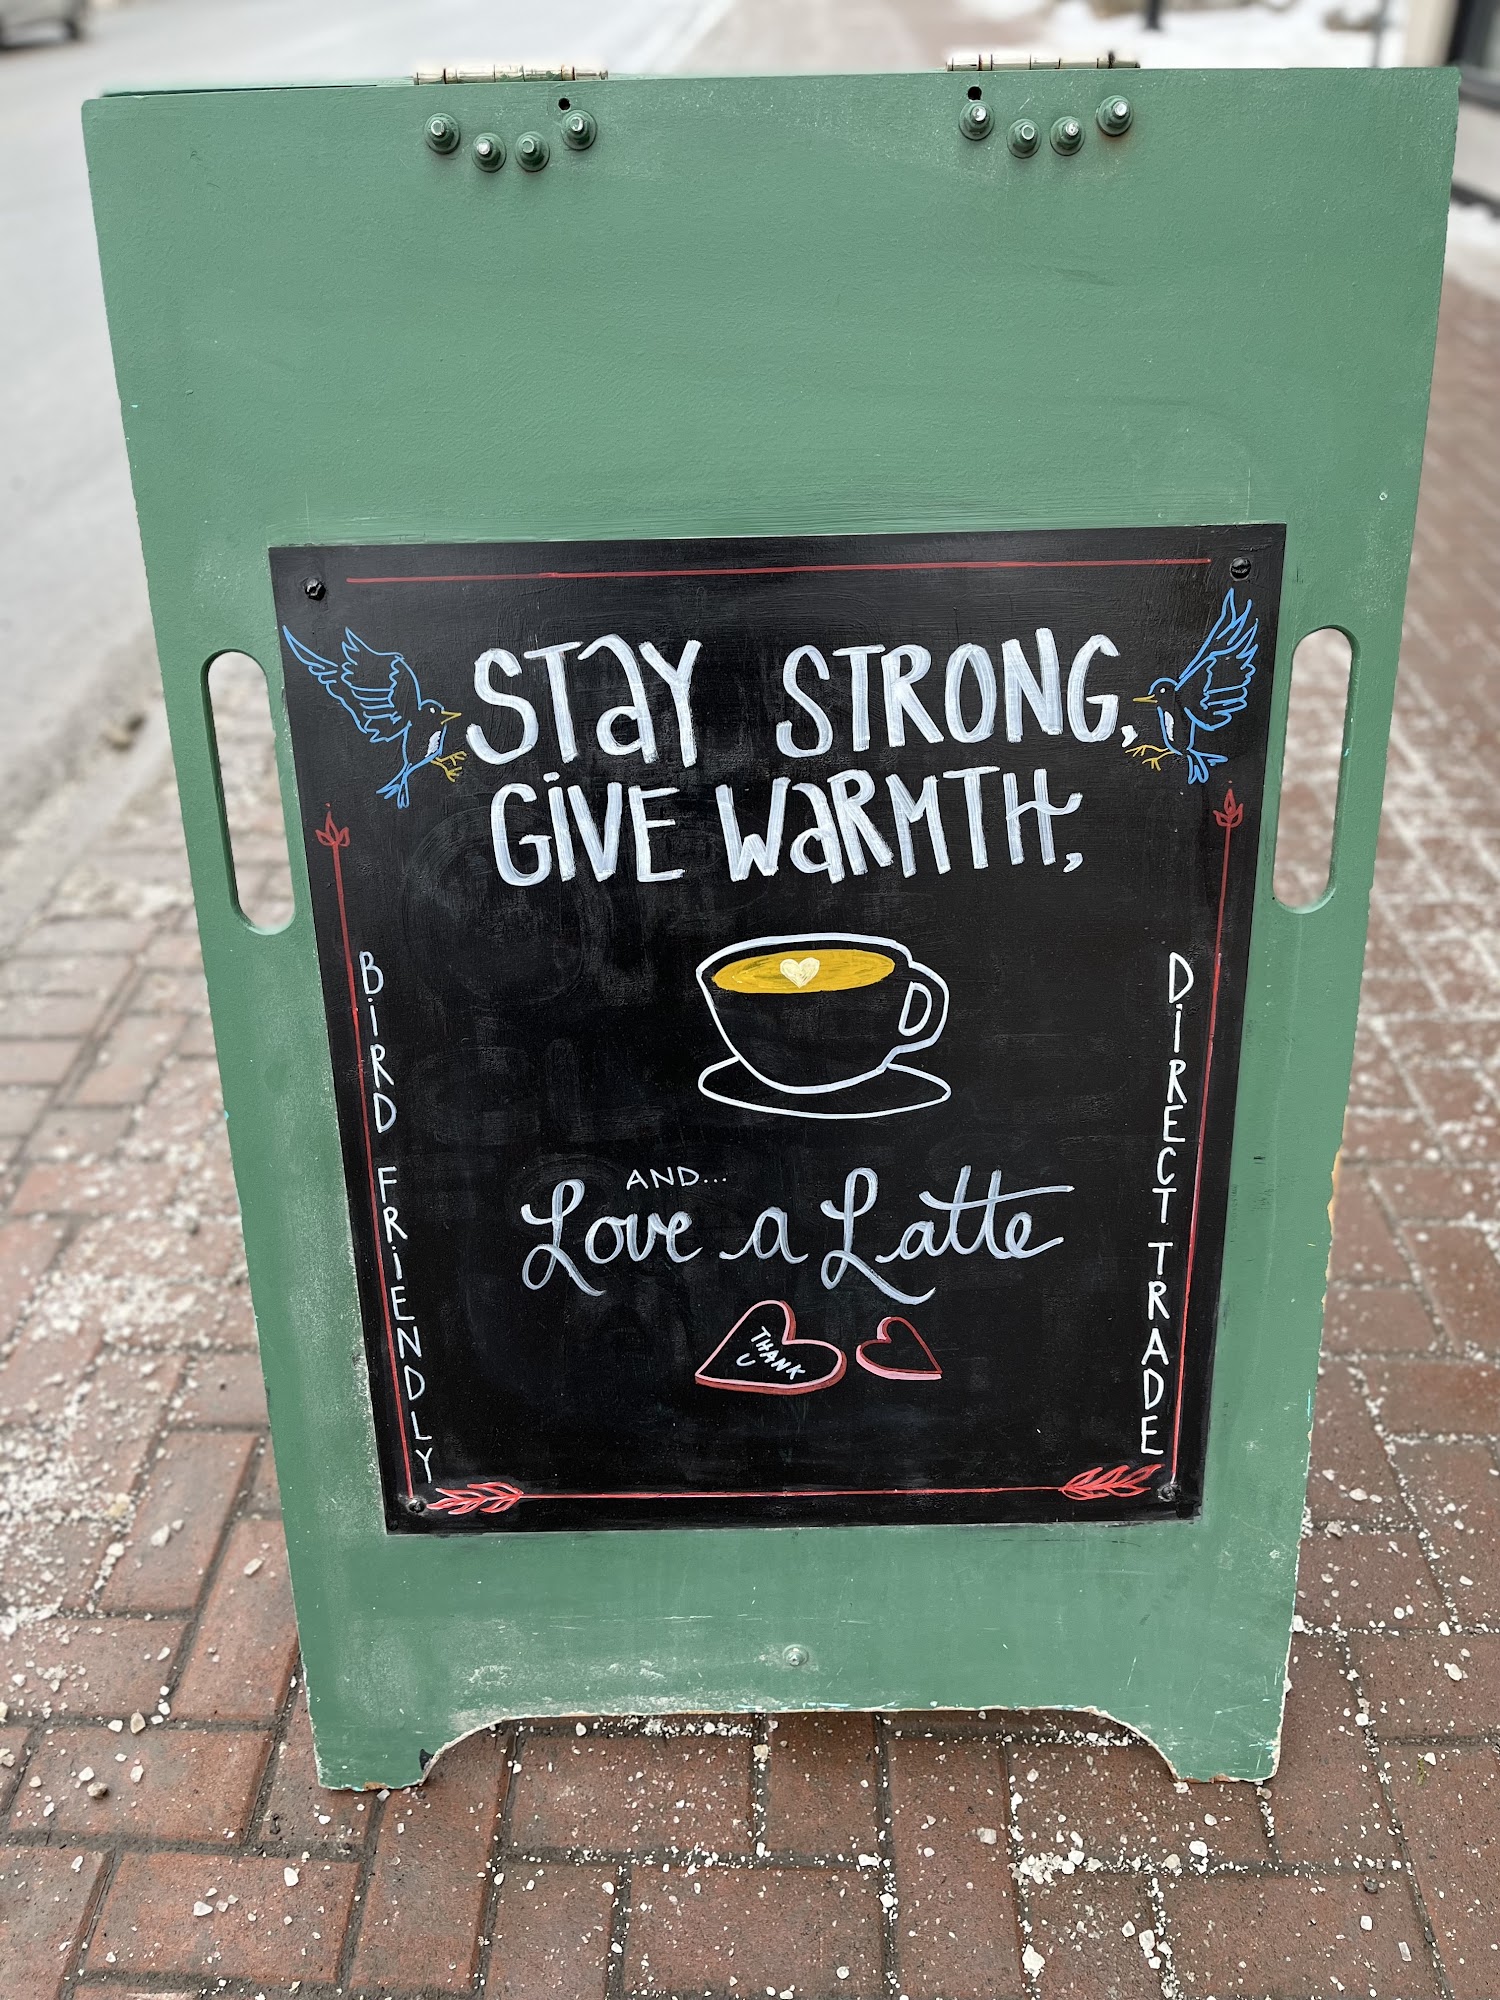 STaY STRONG,
GiVE WaRMTH,
BiRD FRiENDLY
DiRECT TRADE
AND...
Love a Latte
THANK
U